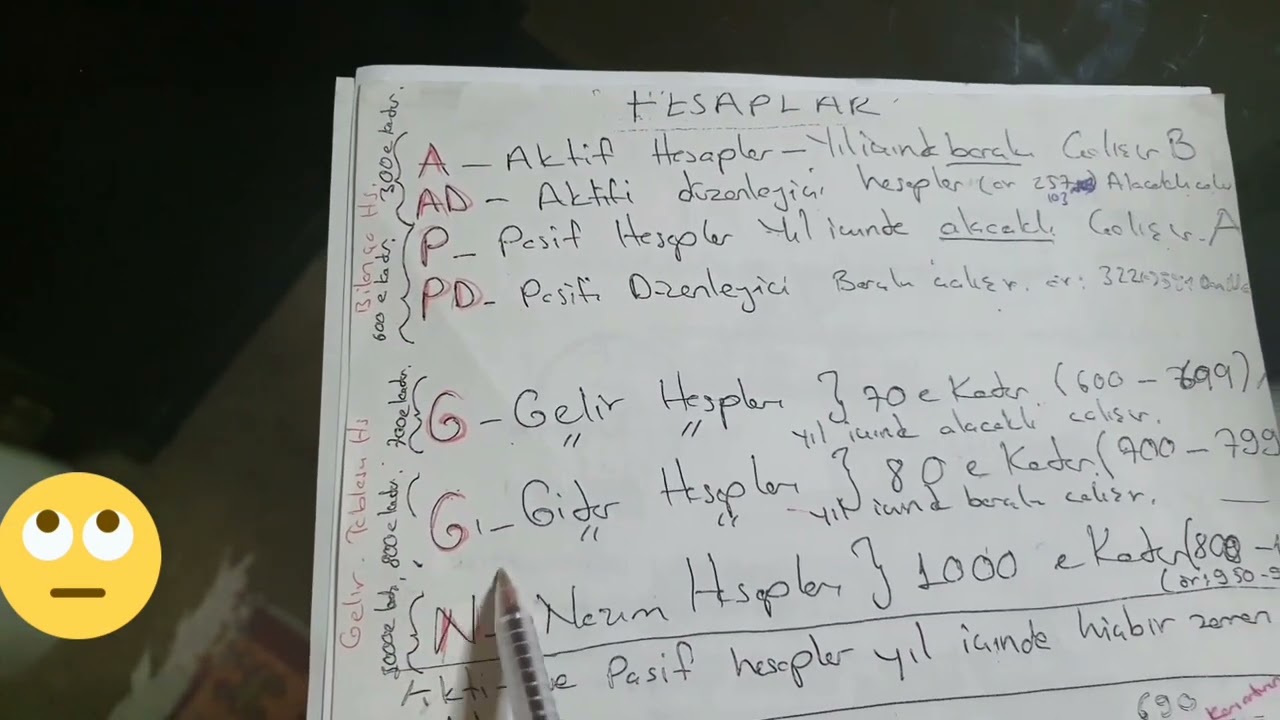 HESAPLAR
A - Aktif Hesaplar - Yıl içinde borçlu Çalışır B
AD - Aktifi düzenleyici hesaplar (ör 257 Alacaklı çalı
103
P - Pasif Hesaplar Yıl içinde alacaklı Çalışır. A
PD - Pasifi Düzenleyici Borçlu çalışır. ör: 322
G - Gelir Hesapları } 70 e Kadar. (600 - 699)
" " yıl içinde alacaklı çalışır.
G - Gider Hesapları } 80 e Kadar. (700 - 799
" " yıl içinde borçlu çalışır.
N - Nazım Hesapları } 1000 e Kadar (800 -
(ör: 950 - 9
Pasif hesaplar yıl içinde hiçbir zaman
690
Bilanço Hs.
300 e kadar.
600 e kadar.
Gelir. Tablosu Hs
700 e kadar.
800 e kadar.